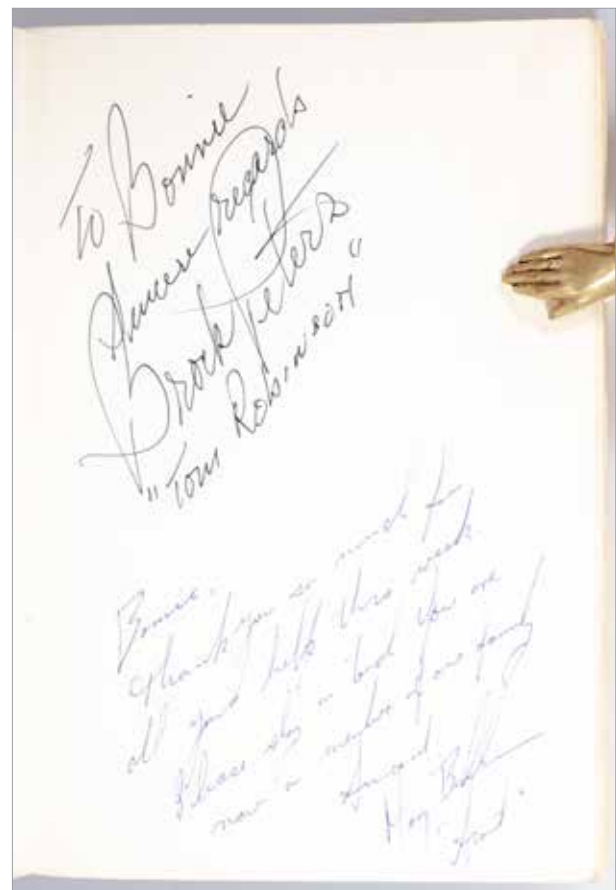 To Bonnie
Sincere regards
Brock Peters
"Tom Robinson"
Bonnie,
Thank you so much for
all your help this week
Please stay in touch You are
now a member of our family
Mary Badham
"Scout"